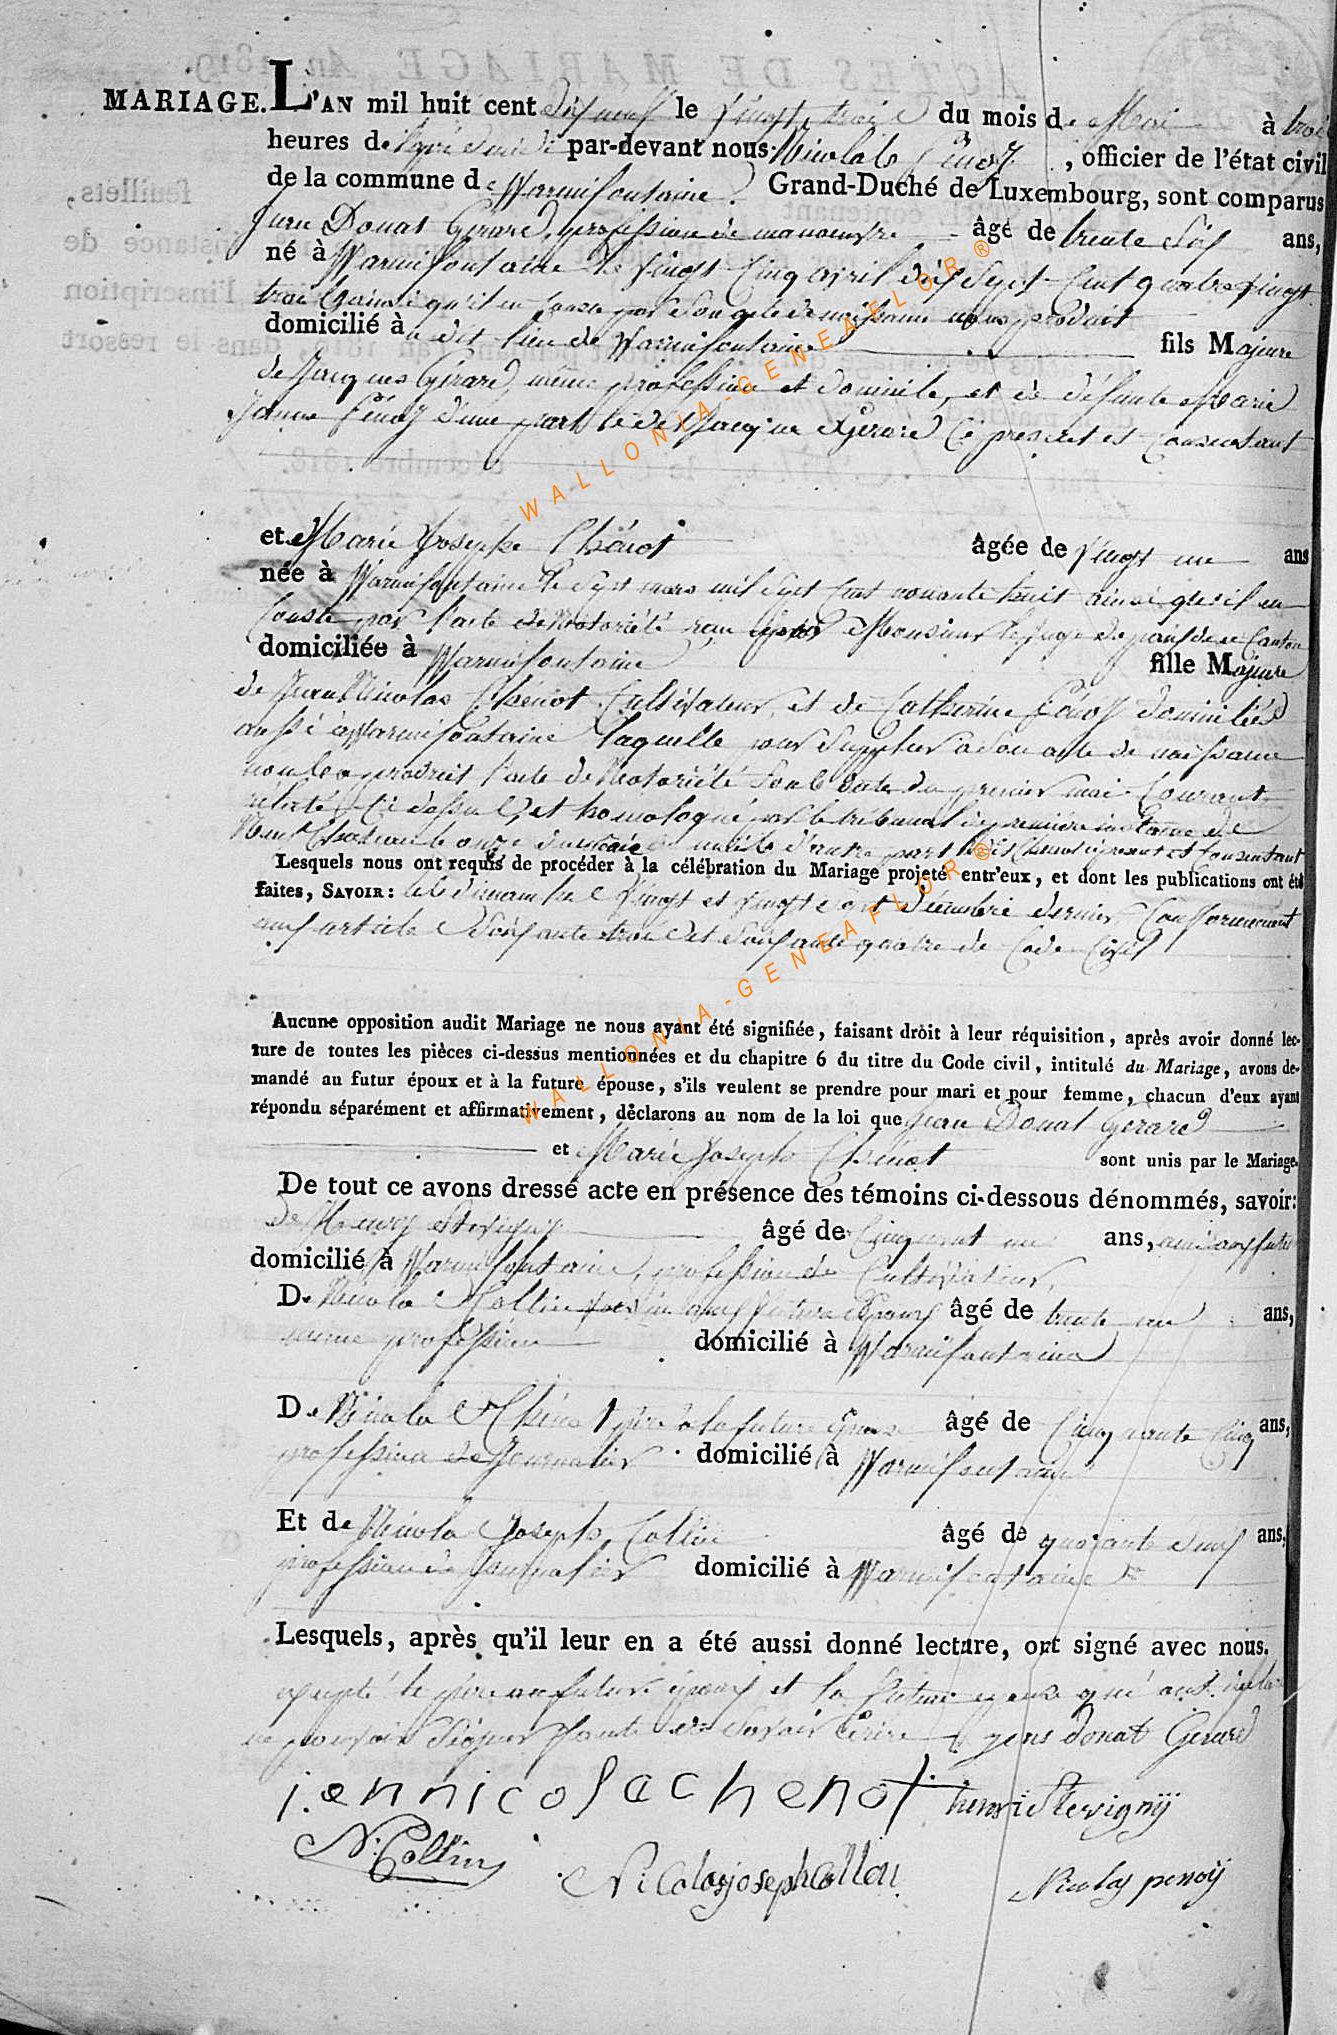 MARIAGE. L'AN mil huit cent dix neuf le vingt trois du mois de Mai à trois
heures de l'après midi par-devant nous Nicolas Penoy, officier de l'état civil
de la commune de Warmifontaine. Grand-Duché de Luxembourg, sont comparus
Jean Donat Gérard, profession de manoeuvre âgé de trente six ans,
né à Warmifontaine le vingt cinq avril dix sept cent quatre vingt
trois ainsi qu'il en conste par son acte de naissance nous produit
domicilié à dit lieu de Warmifontaine fils Majeure
de Jacques Gérard, même profession et domicile, et de défunte Marie
Jeanne Penoy d'une part le dit Jacque Gérard ci présent et consentant
et Marie Josephe Chénot âgée de vingt un ans
née à Warmifontaine le sept mars mil sept cent nonante huit ainsi qu'il en
conste par l'acte de Notoriété Monsieur le juge de paix de ce Canton
domiciliée à Warmifontaine fille Majeure
de Jean Nicolas Chénot Cultivateur, et de Catherine Penoy domiciliés
aussi à Warmifontaine laquelle pour suppléer à son acte de naissance
nous a produit l'acte de Notoriété sous la date du premier mai courant
relaté ci dessus et homologué par le tribunal de première instance de
Neufchateau le onze d'autre part ci présent et consentant
Lesquels nous ont requis de procéder à la célébration du Mariage projeté entr'eux, et dont les publications ont été
faites, SAVOIR: les dimanche vingt et vingt sept décembre dernier conformément
aux article soixante trois et soixante quatre de Code Civil
Aucune opposition audit Mariage ne nous ayant été signifiée, faisant droit à leur réquisition, après avoir donné lec-
ture de toutes les pièces ci-dessus mentionnées et du chapitre 6 du titre du Code civil, intitulé du Mariage, avons de-
mandé au futur époux et à la future épouse, s'ils veulent se prendre pour mari et pour femme, chacun d'eux ayant
répondu séparément et affirmativement, déclarons au nom de la loi que Jean Donat Gérard
et Marie Josephe Chénot sont unis par le Mariage.
De tout ce avons dressé acte en présence des témoins ci-dessous dénommés, savoir:
De Henry Stevigny âgé de Cinquant un ans, ami aux futur
domicilié à Warmifontaine, profession de Cultivateur,
De Nicola Collin aux future Epoux âgé de trente un ans,
même profession domicilié à Warmifontaine
De Nicola Chénot père à la future Epouse âgé de Cinquante Cinq ans,
profession de Journalier domicilié à Warmifontaine
Et de Nicola Joseph Collin âgé de quarante neuf ans,
profession de Journalier domicilié à Warmifontaine
Lesquels, après qu'il leur en a été aussi donné lecture, ont signé avec nous.
excepté le père au future époux et la future epouse qui ont déclaré
ne pouvoir signer faute de savoir écrire jens donat Gerard
jennicolachenot henri Stevignÿ
N: Collin Nicolasjosephcollen Nicolas penoÿ
WALLONIA-GENEAFLOR®
WALLONIA-GENEAFLOR®